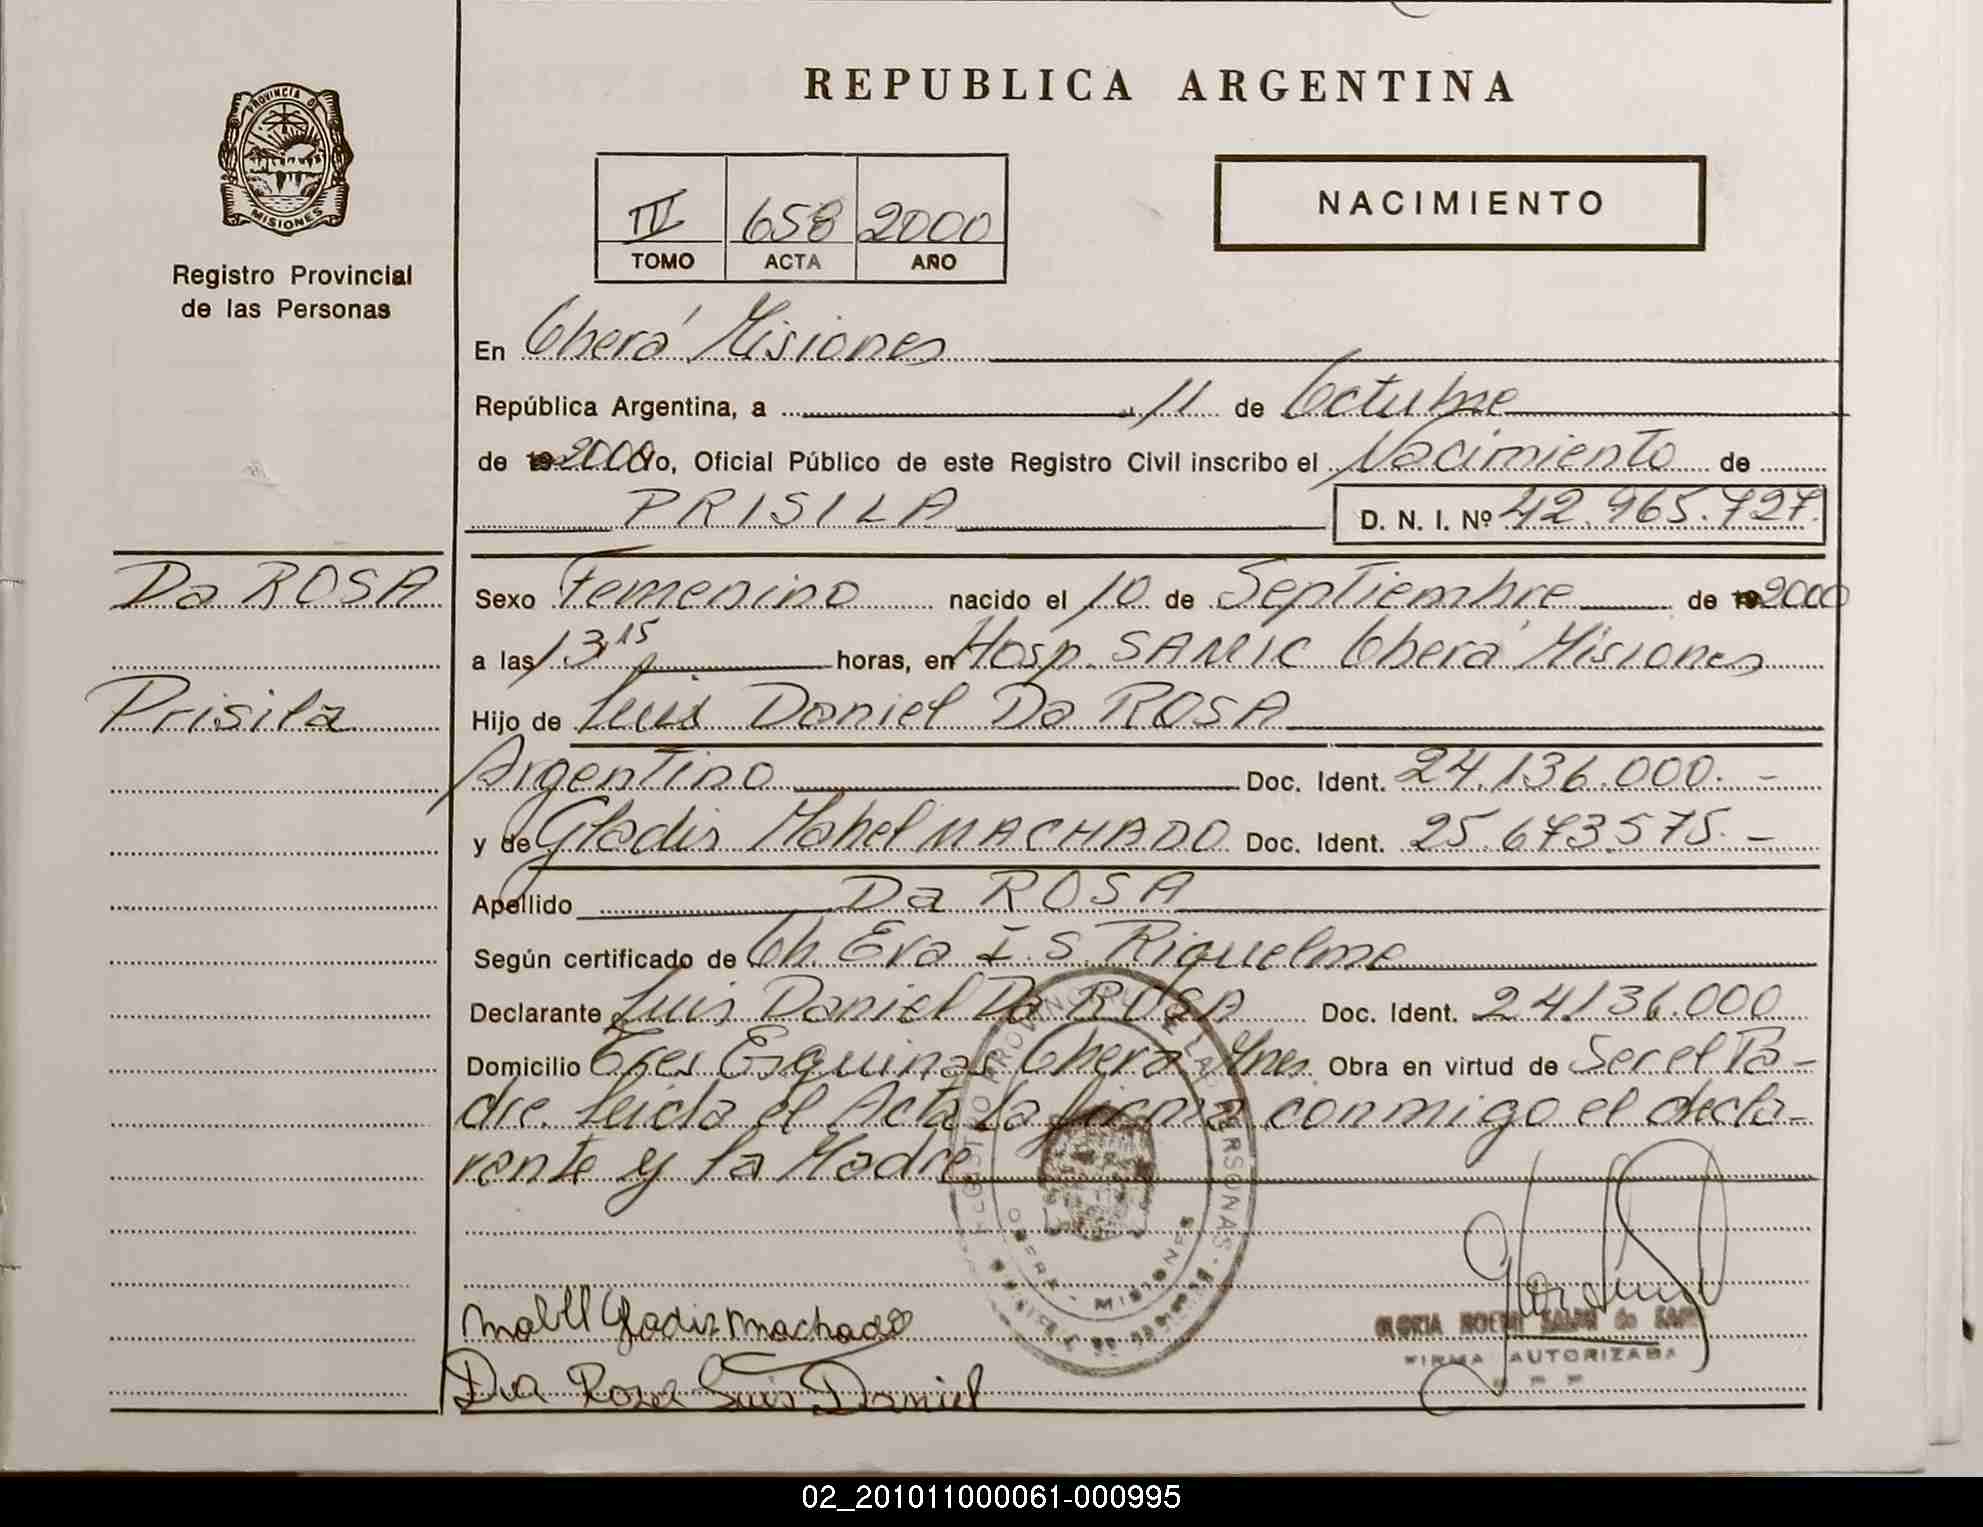 REPUBLICA ARGENTINA
PROVINCIA DE
MISIONES
Registro Provincial
de las Personas
III 658 2000
TOMO ACTA AÑO
NACIMIENTO
En Oberá Misiones
República Argentina, a 11 de Octubre
de 19 2000 Yo, Oficial Público de este Registro Civil inscribo el Nacimiento de
PRISILA D. N. I. Nº 42.965.727.
Da ROSA
Prisila
Sexo Femenino nacido el 10 de Septiembre de 19 2000
a las 13,15 horas, en Hosp. SAMIC Oberá Misiones
Hijo de Luis Daniel Da ROSA
Argentino Doc. Ident. 24.136.000.-
y de Gladis Mabel MACHADO Doc. Ident. 25.673.575.-
Apellido Da ROSA
Según certificado de Ob. Eva I. S. Riquelme
Declarante Luis Daniel Da ROSA Doc. Ident. 24.136.000
Domicilio Tres Esquinas Oberá Mnes. Obra en virtud de Ser el Pa-
dre. Leída el Acta la firma conmigo el decla-
rante y la Madre
REGISTRO PROVINCIAL DE LAS PERSONAS
OBERA - MISIONES
Mabel Gladis Machado
Da Rosa Luis Daniel
GLORIA NOEMI
FIRMA AUTORIZADA
02_201011000061-000995